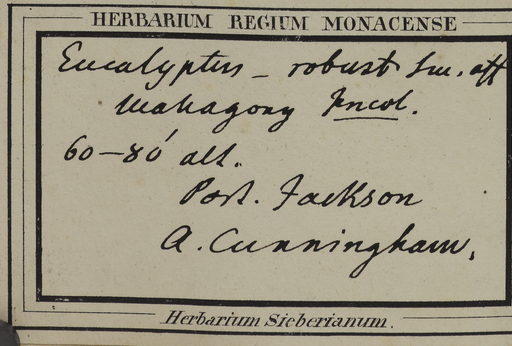 HERBARIUM REGIUM MONACENSE
Eucalyptus – robust Sm. aff
Mahagony Incol.
60–80' alt.
Port. Jackson
A. Cunningham.
Herbarium Sieberianum.